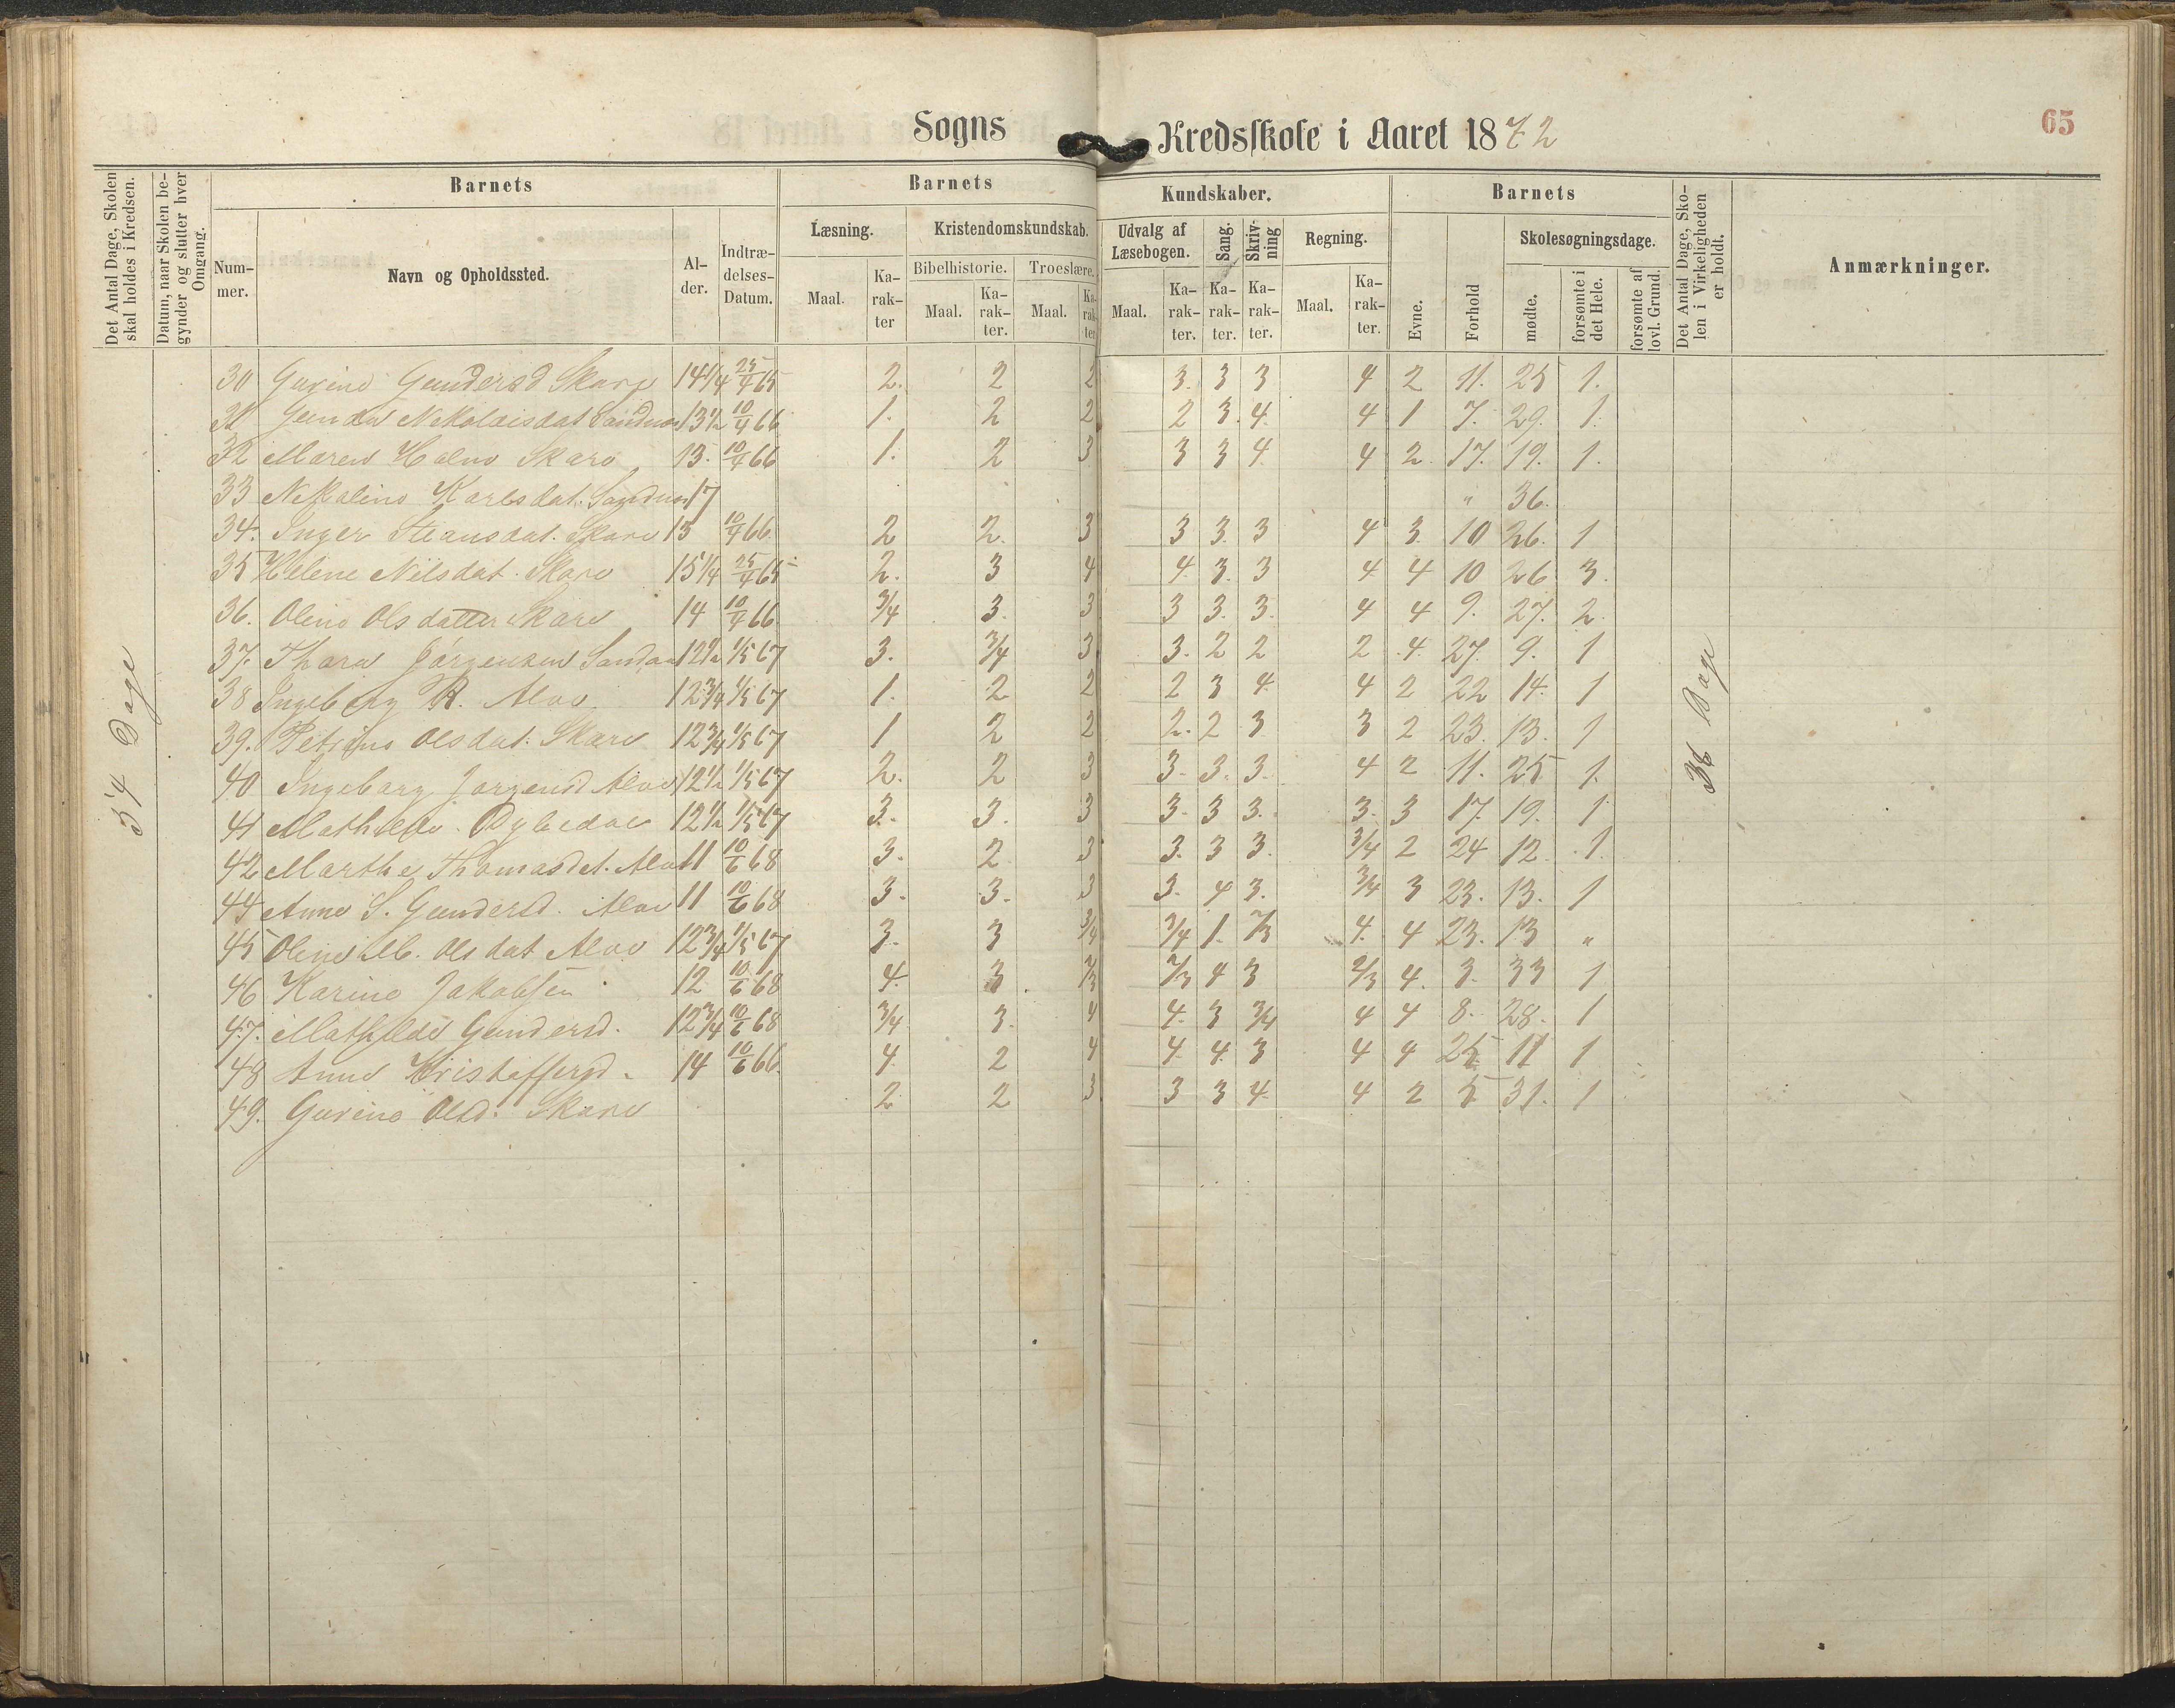 Sogns Kredsskole i Aaret 1872
65
Det Antal Dage, Skolen skal holdes i Kredsen.
Datum, naar Skolen begynder og slutter hver Omgang.
Barnets
Nummer.
Navn og Opholdssted.
Alder.
Indtrædelses-Datum.
Barnets Kundskaber.
Læsning.
Maal.
Karakter
Kristendomskundskab.
Bibelhistorie.
Maal.
Karakter.
Troeslære.
Maal.
Karakter
Udvalg af Læsebogen.
Maal.
Karakter.
Sang.
Karakter.
Skrivning
Karakter.
Regning.
Maal.
Karakter.
Barnets
Evne.
Forhold
Skolesøgningsdage.
mødte.
forsømte i det Hele.
forsømte af lovl. Grund.
Det Antal Dage, Skolen i Virkeligheden er holdt.
Anmærkninger.
54 Dage
36 Dage
30 Gurine Gundersd Skare 14 1/4 25/4 65 2. 2 2 3. 3 3 4 2 11. 25 1.
31 Nikolaisdat 13 1/2 10/4 66 1. 2 2 2 3. 4. 4 1 7. 29. 1.
32 Maren Skare 13. 10/4 66 1. 2 3 3 3 4. 4 2. 17. 19. 1.
33 Nikoline Karlsdat. 17 " 36.
34. Inger Skare 13 10/4 66. 2 2. 3 3 3. 3 4 3. 10 26. 1
35 Helene Nilsdat. Skare 15 1/4 25/4 65 2. 3 4 4. 3. 3 4 4 10 26 3.
36. Oline Olsdatter Skare 14 10/4 66 3/4 3. 3 3 3. 3. 4 4 9. 27. 2.
37. Thara Jörgensen 12 1/2 1/5 67 3. 3/4 3 3. 2 2 2 4. 27. 9. 1
38 Ingeborg R. Alve 12 3/4 1/5 67 1. 2 2 2 3 4. 4 2 22 14. 1
39. Petrine Olsdat. Skare 12 3/4 1/5 67 1 2 2 2. 2 3 3 2 23. 13. 1
40 Ingeborg Jorgensd Alve 12 1/2 1/5 67 2. 2 3 3. 3. 3. 4 2 11. 25 1.
41 Mathilde 12 1/2 1/5 67 3. 3. 3 3. 3 3. 3. 3 17. 19. 1
42 Marthe Thomasdet. Alve 11 10/6 68 3. 2 3 3. 3 3. 3/4 2 24 12. 1.
44 Anne S. Gundersd. Alve 11 10/6 68 3. 3. 3 3. 4 3. 3/4 3 23. 13. 1
45 Oline M. Olsdat Alve 12 3/4 1/5 67 3. 3 3/4 3/4 1. 2/3 4. 4 23. 13 "
46 Karine Jakobsen 12 10/6 68 4. 3 2/3 2/3 4 3 2/3 4. 3. 33 1
47. Mathilde Gundersd. 12 3/4 10/6 68 3/4 3. 4 4. 3 3/4 4 4 8. 28. 1
48 Anne Kristoffersd. 14 10/6 66. 4. 2 4 4. 4. 3 4 4 25 11 1
49. Gurine Olsd. Skare 2 2 3 3 3 4. 4 2 5 31. 1